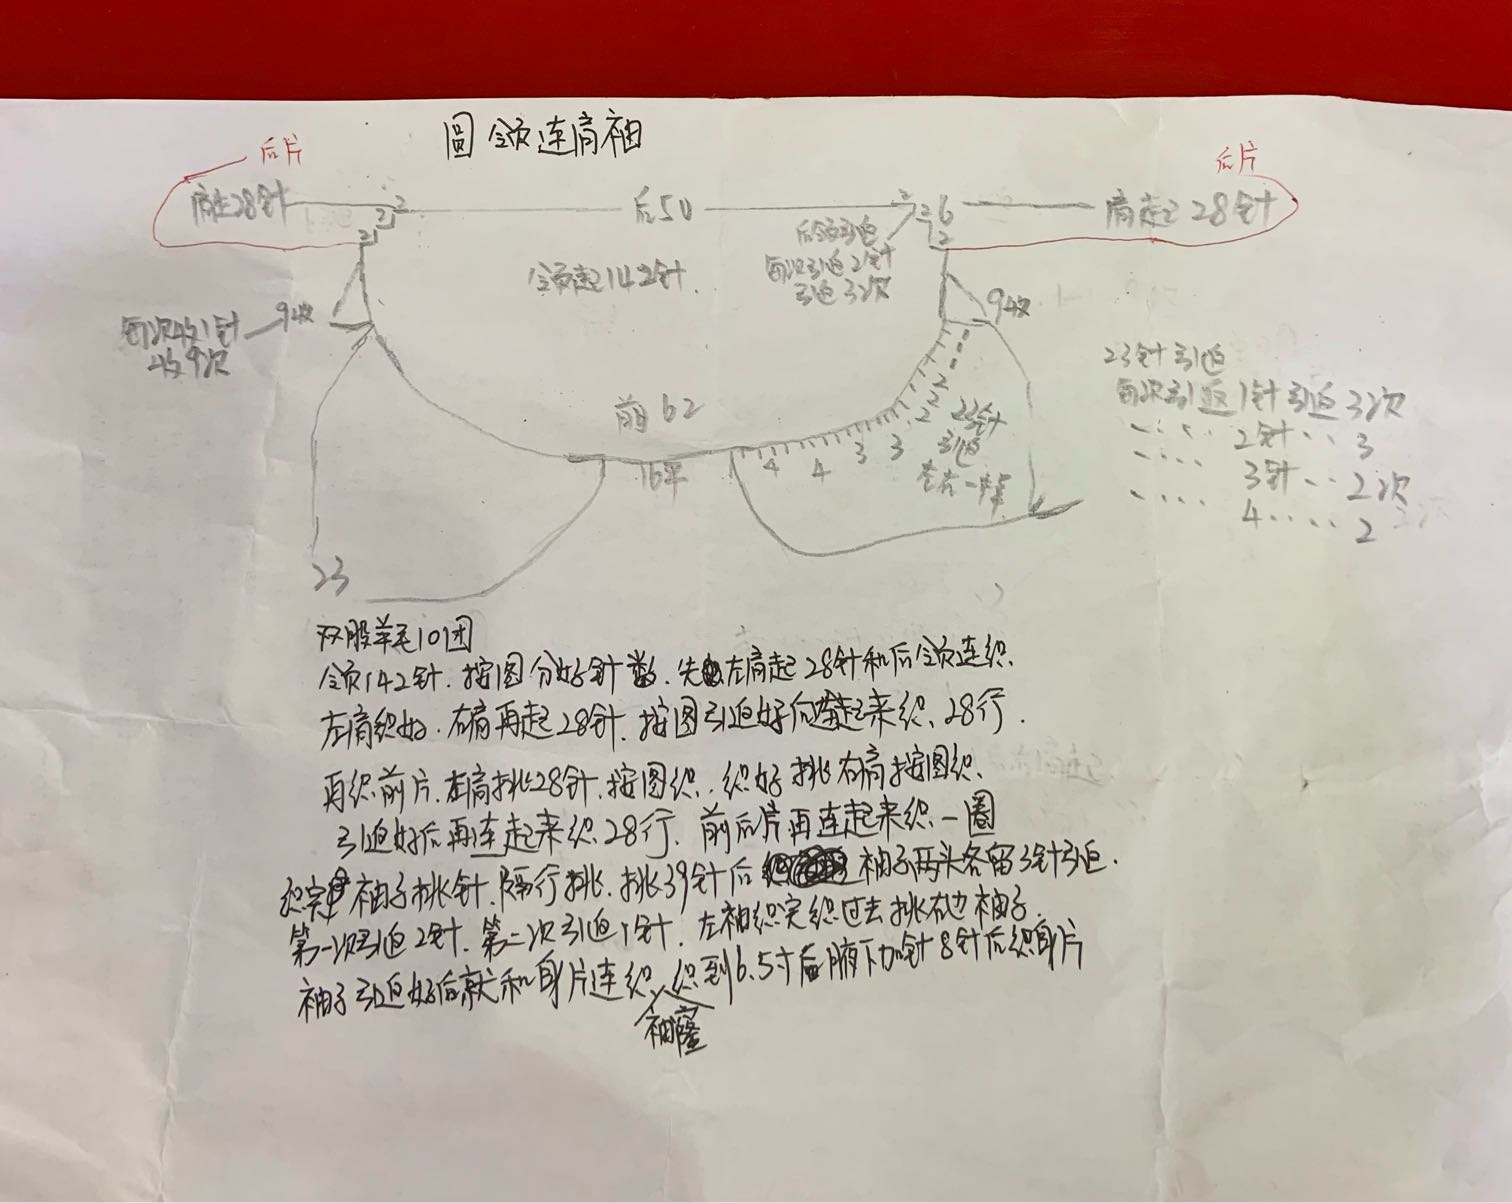 圆领连肩袖
后片
后片
肩起28针
2
2
2
后50
2
2
6
2
肩起28针
后领引返
每次引返2针
引返3次
领起142针
94收
94收
每次收1针
收9次
前62
16平
4
4
3
3
2
2
2
23针
引返
左右一样
23针引返
每次引返1针引返3次
〃 〃 2针 〃 3
〃 〃 3针 〃 2次
〃 〃 4 〃 2
23
双股羊毛10团
领142针.按图分好针数.先左肩起28针和后领连织.
左肩织好.右肩再起28针.按图引返好后连起来织.28行.
再织前片.左肩挑28针.按图织.织好挑右肩按图织.
引返好后再连起来织.28行.前后片再连起来织一圈
织完 袖子挑针.隔行挑.挑39针后 袖子两头各留3针引返.
第一次引返2针.第二次引返1针.左袖织完织过去挑右边袖子.
袖子引返好后就和身片连织.织到6.5寸后腋下加针8针后织身片
袖窿